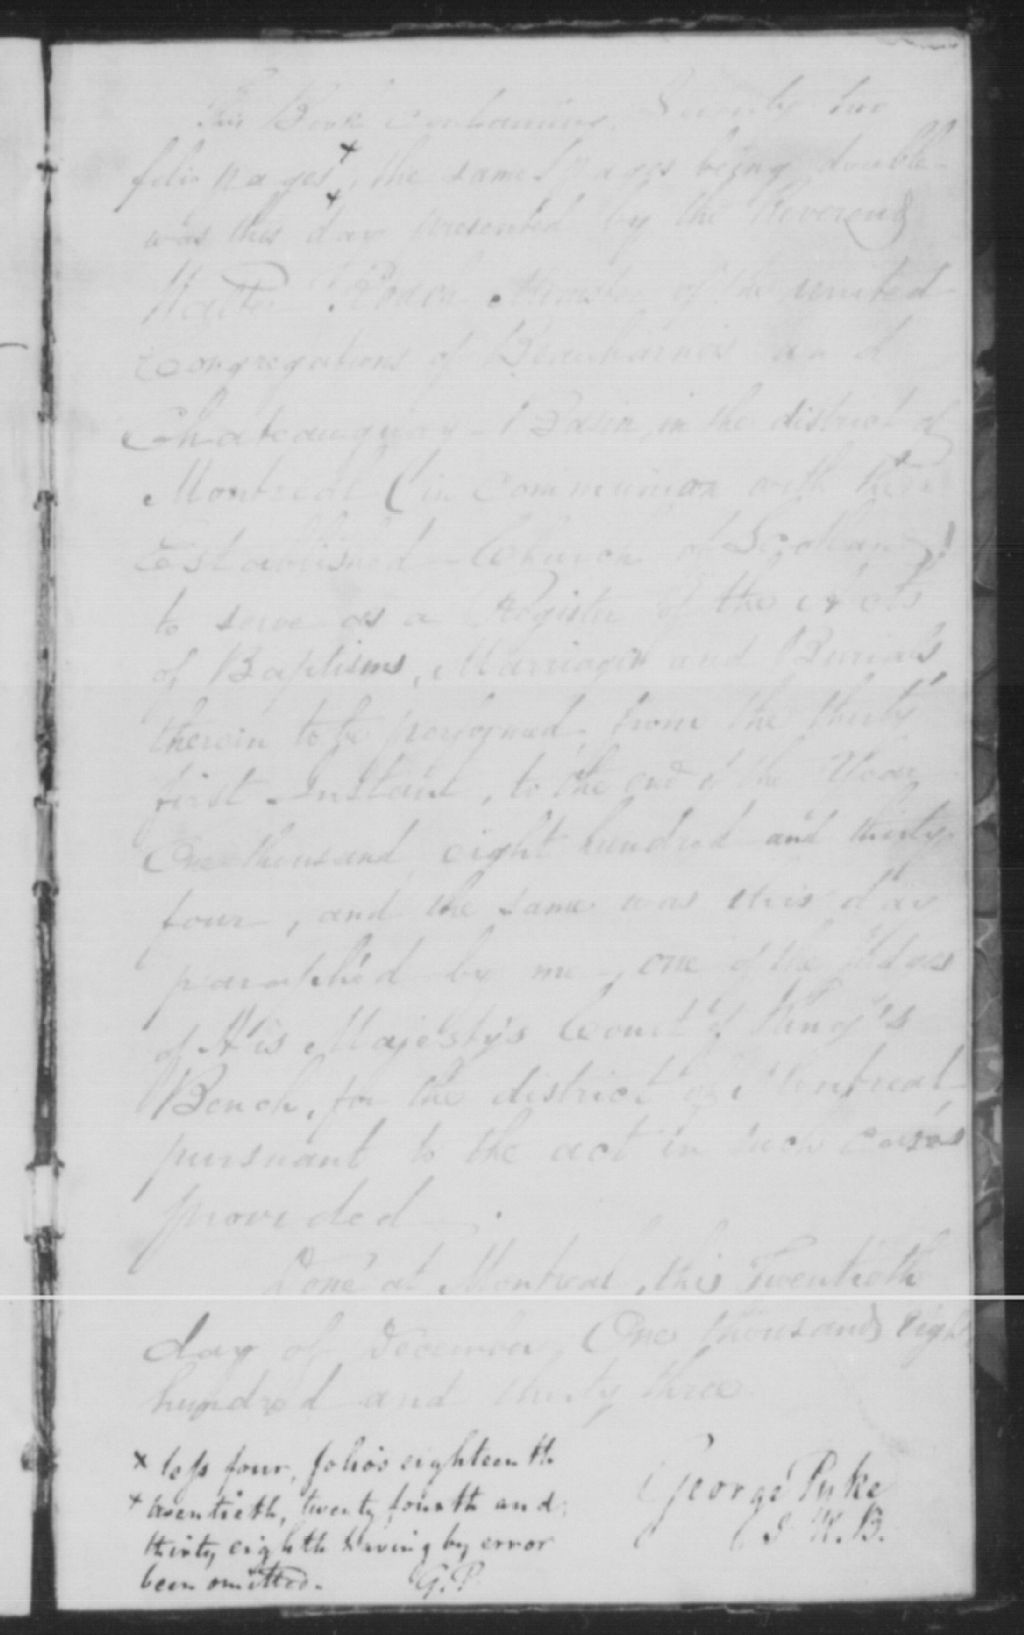 This Book containing Seventy two
folio pages ×, the same pages being double
× was this day presented by the Reverend
Walter Roach Minister of the united
Congregations of Beauharnois and
Chateauguay Basin, in the district of
Montreal (in communion with the
Established Church of Scotland)
to serve as a Register of the Acts
of Baptisms, Marriages and Burials
therein to be performed from the thirty
first Instant, to the end of the Year
One thousand eight hundred and thirty
four, and the same was this day
paraphed by me, one of the Judges
of His Majesty's Court of King's
Bench, for the district of Montreal
pursuant to the act in such cases
provided.
Done at Montreal, this Twentieth
day of December, One thousand eight
hundred and thirty three
× less four, folios eighteenth
× twentieth, twenty fourth and
thirty eighth having by error
been omitted. G.P.
George Pyke
J. K. B.